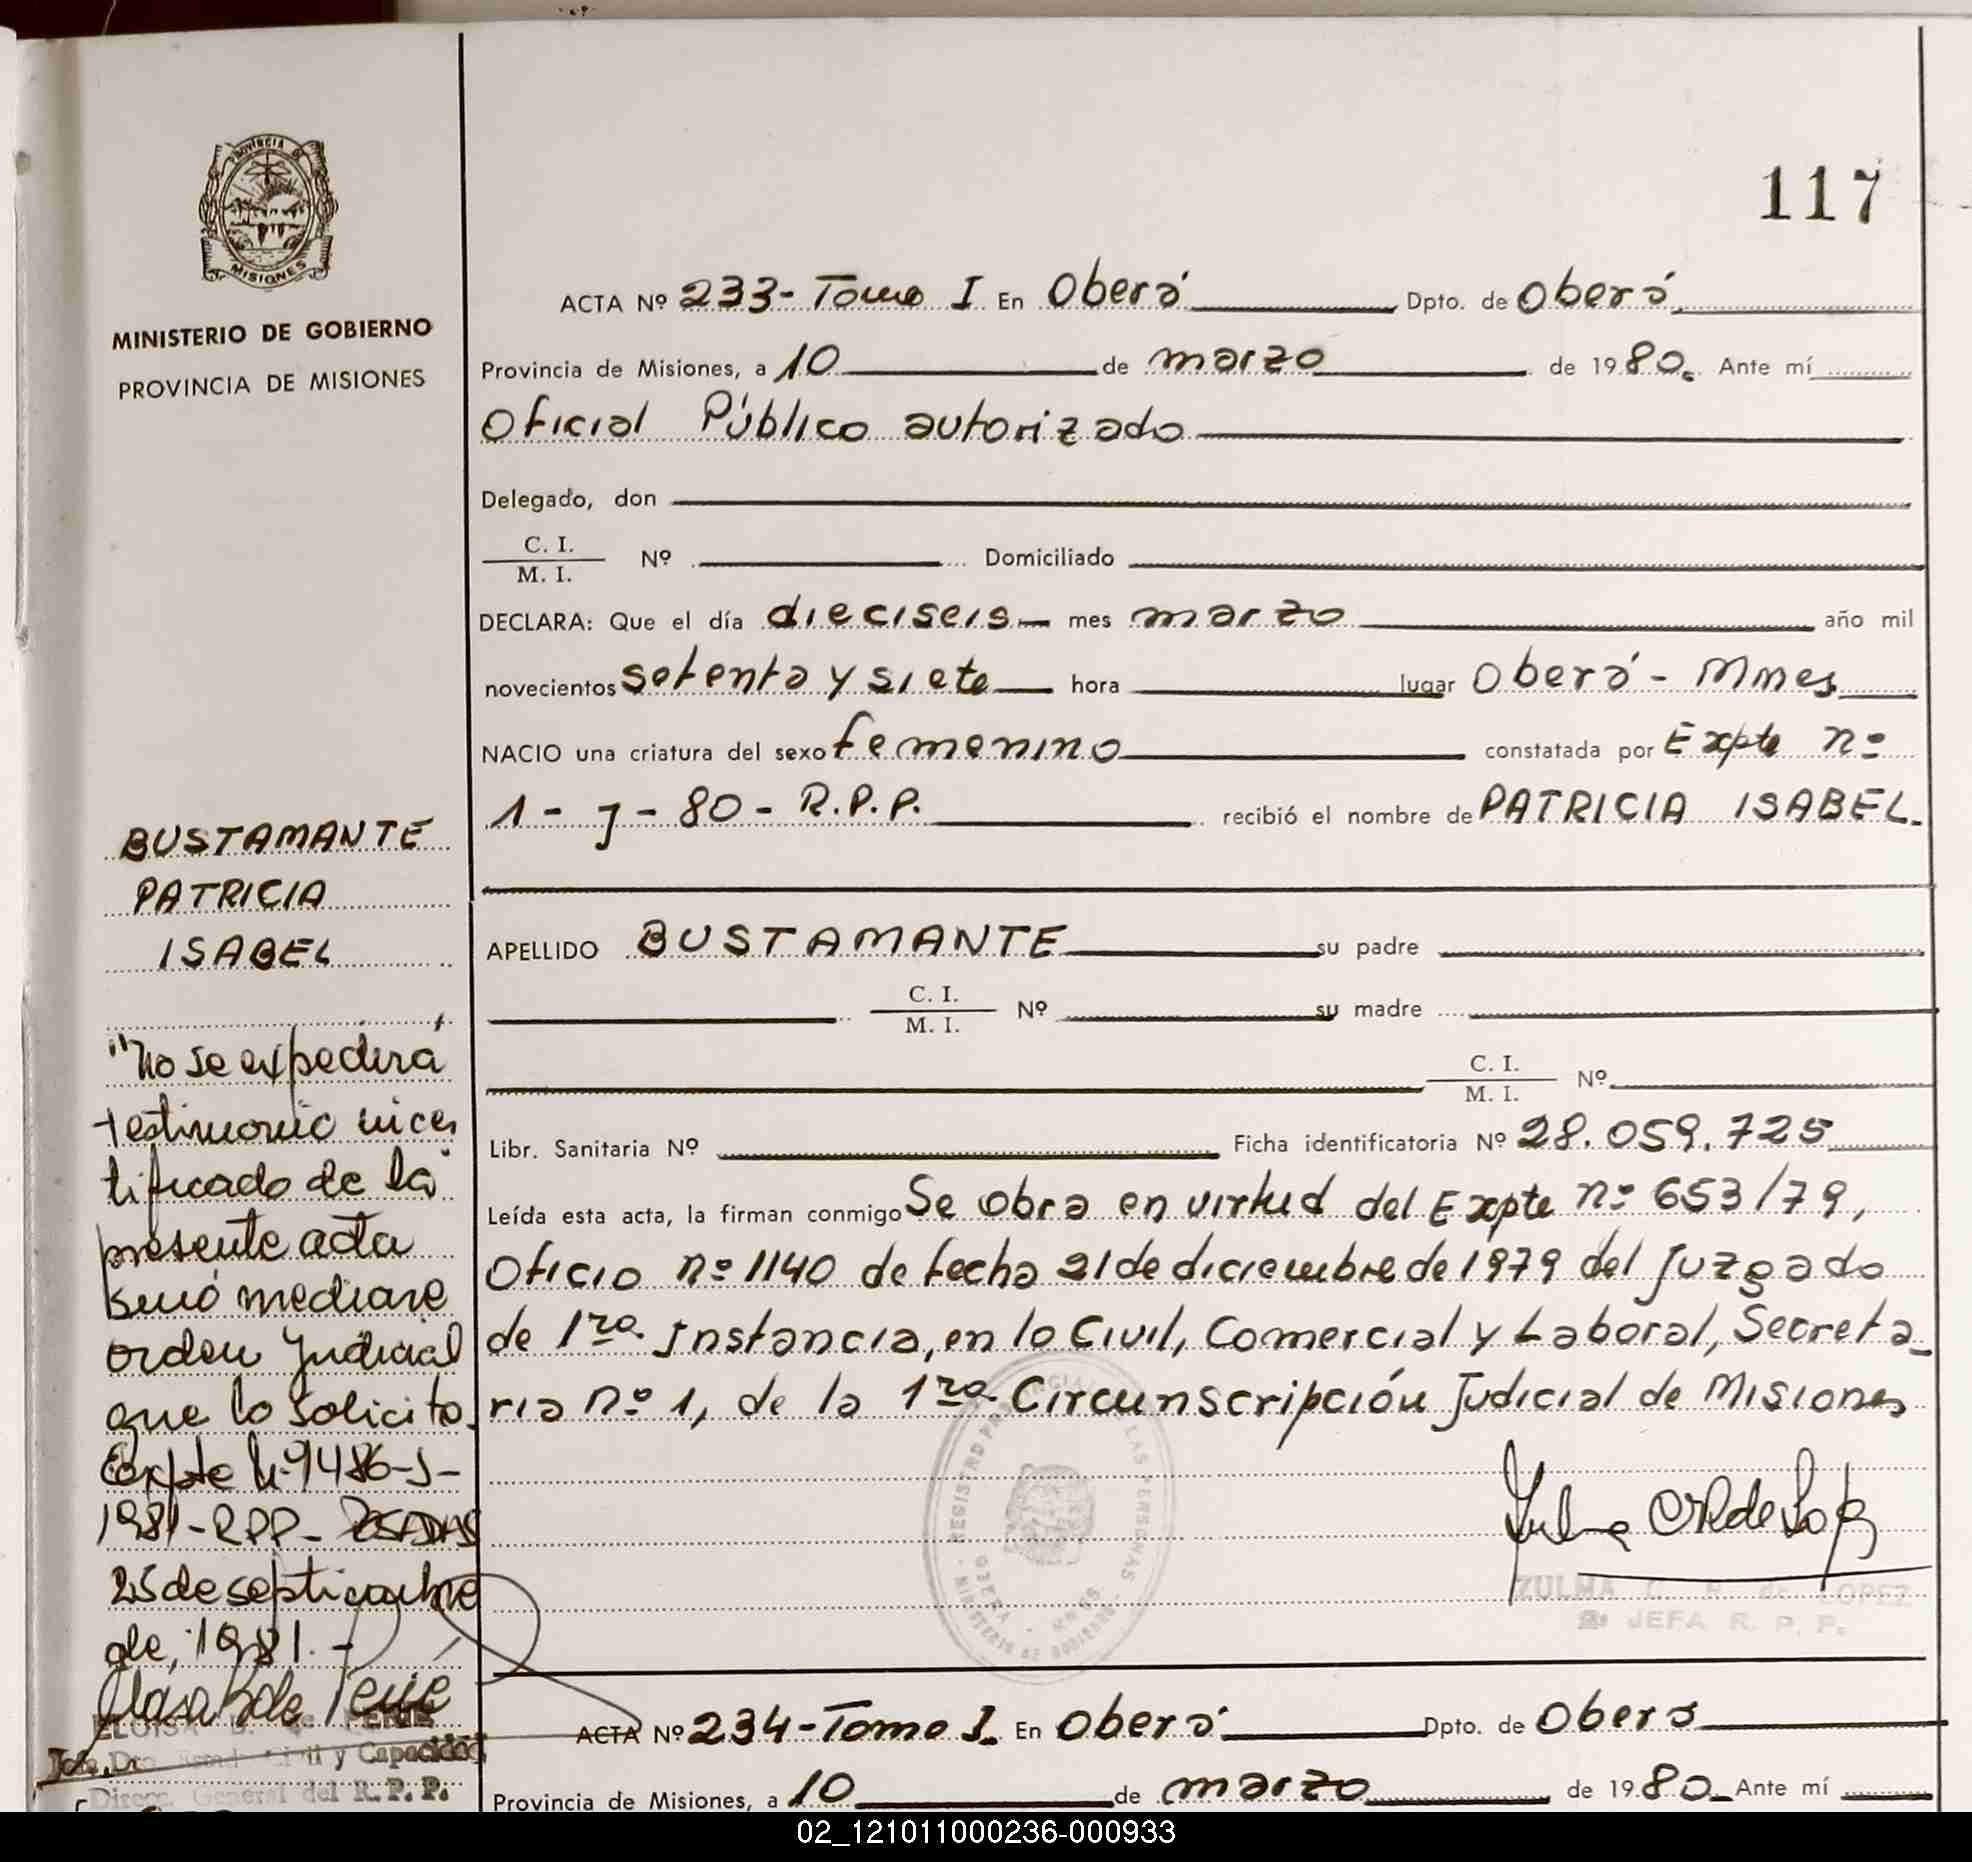 PROVINCIA DE
MISIONES
MINISTERIO DE GOBIERNO
PROVINCIA DE MISIONES
117
ACTA Nº 233- Tomo I En Oberá Dpto. de Oberá
Provincia de Misiones, a 10 de marzo de 1980. Ante mí
Oficial Público autorizado
Delegado, don
C. I.
M. I. Nº Domiciliado
DECLARA: Que el día dieciseis mes marzo año mil
novecientos setenta y siete hora lugar Oberá - Mnes
NACIO una criatura del sexo femenino constatada por Expte nº
1 - J - 80 - R.P.P. recibió el nombre de PATRICIA ISABEL.
BUSTAMANTE
PATRICIA
ISABEL
APELLIDO BUSTAMANTE su padre
C. I.
M. I. Nº su madre
C. I.
M. I. Nº
Libr. Sanitaria Nº Ficha identificatoria Nº 28.059.725
Leída esta acta, la firman conmigo Se obra en virtud del Expte nº 653/79,
Oficio nº 1140 de fecha 21 de diciembre de 1979 del Juzgado
de 1ra. Instancia, en lo Civil, Comercial y Laboral, Secreta
ria nº 1, de la 1ra. Circunscripción Judicial de Misiones
"No se expedirá
testimonio ni cer
tificado de la
presente acta
sinó mediare
orden Judicial
que lo solicite.
Expte Nº 9486-J-
1981-RPP- POSADAS
25 de septiembre
de, 1981.-
REGISTRO PROVINCIAL DE LAS PERSONAS
MINISTERIO DE GOBIERNO
OBERA - MNES
ZULMA C. R. de LOPEZ
JEFA R. P. P.
ELOISA B. de PERIE
Civil y Capacidad
Direcc. General del R. P. P.
ACTA Nº 234-Tomo I En Oberá Dpto. de Oberá
Provincia de Misiones, a 10 de marzo de 1980 Ante mí
02_121011000236-000933